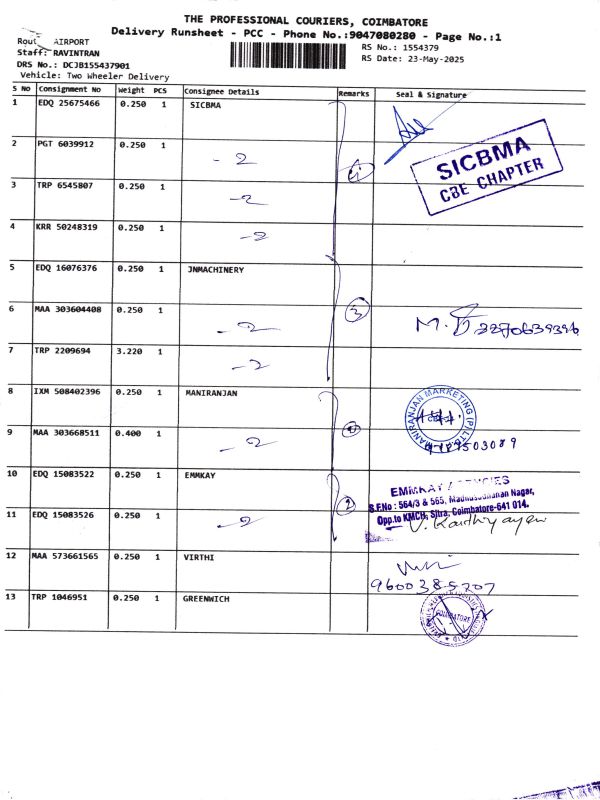 THE PROFESSIONAL COURIERS, COIMBATORE
Delivery Runsheet - PCC - Phone No.:9047080280 - Page No.:1
Rout AIRPORT
RS No.: 1554379
Staff: RAVINTRAN
RS Date: 23-May-2025
DRS No.: DCJB155437901
Vehicle: Two Wheeler Delivery
S No Consignment No Weight PCS Consignee Details Remarks Seal & Signature
1 EDQ 25675466 0.250 1 SICBMA
SICBMA
CBE CHAPTER
2 PGT 6039912 0.250 1 - 2
3 TRP 6545807 0.250 1 - 2
4 KRR 50248319 0.250 1 - 2
5 EDQ 16076376 0.250 1 JNMACHINERY
6 MAA 303604408 0.250 1 - 2 3
7 TRP 2209694 3.220 1 - 2
8 IXM 508402396 0.250 1 MANIRANJAN
MANIRANJAN MARKETING (P) LTD
9 MAA 303668511 0.400 1 - 2
10 EDQ 15083522 0.250 1 EMMKAY 2
EMMKAY AGENCIES
S.F.No : 564/3 & 565, Madhusudhanan Nagar,
Opp.to KMCH, Sitra, Coimbatore-641 014.
V. Karthiyayen
11 EDQ 15083526 0.250 1 - 2
12 MAA 573661565 0.250 1 VIRTHI
9600385707
13 TRP 1046951 0.250 1 GREENWICH
COIMBATORE